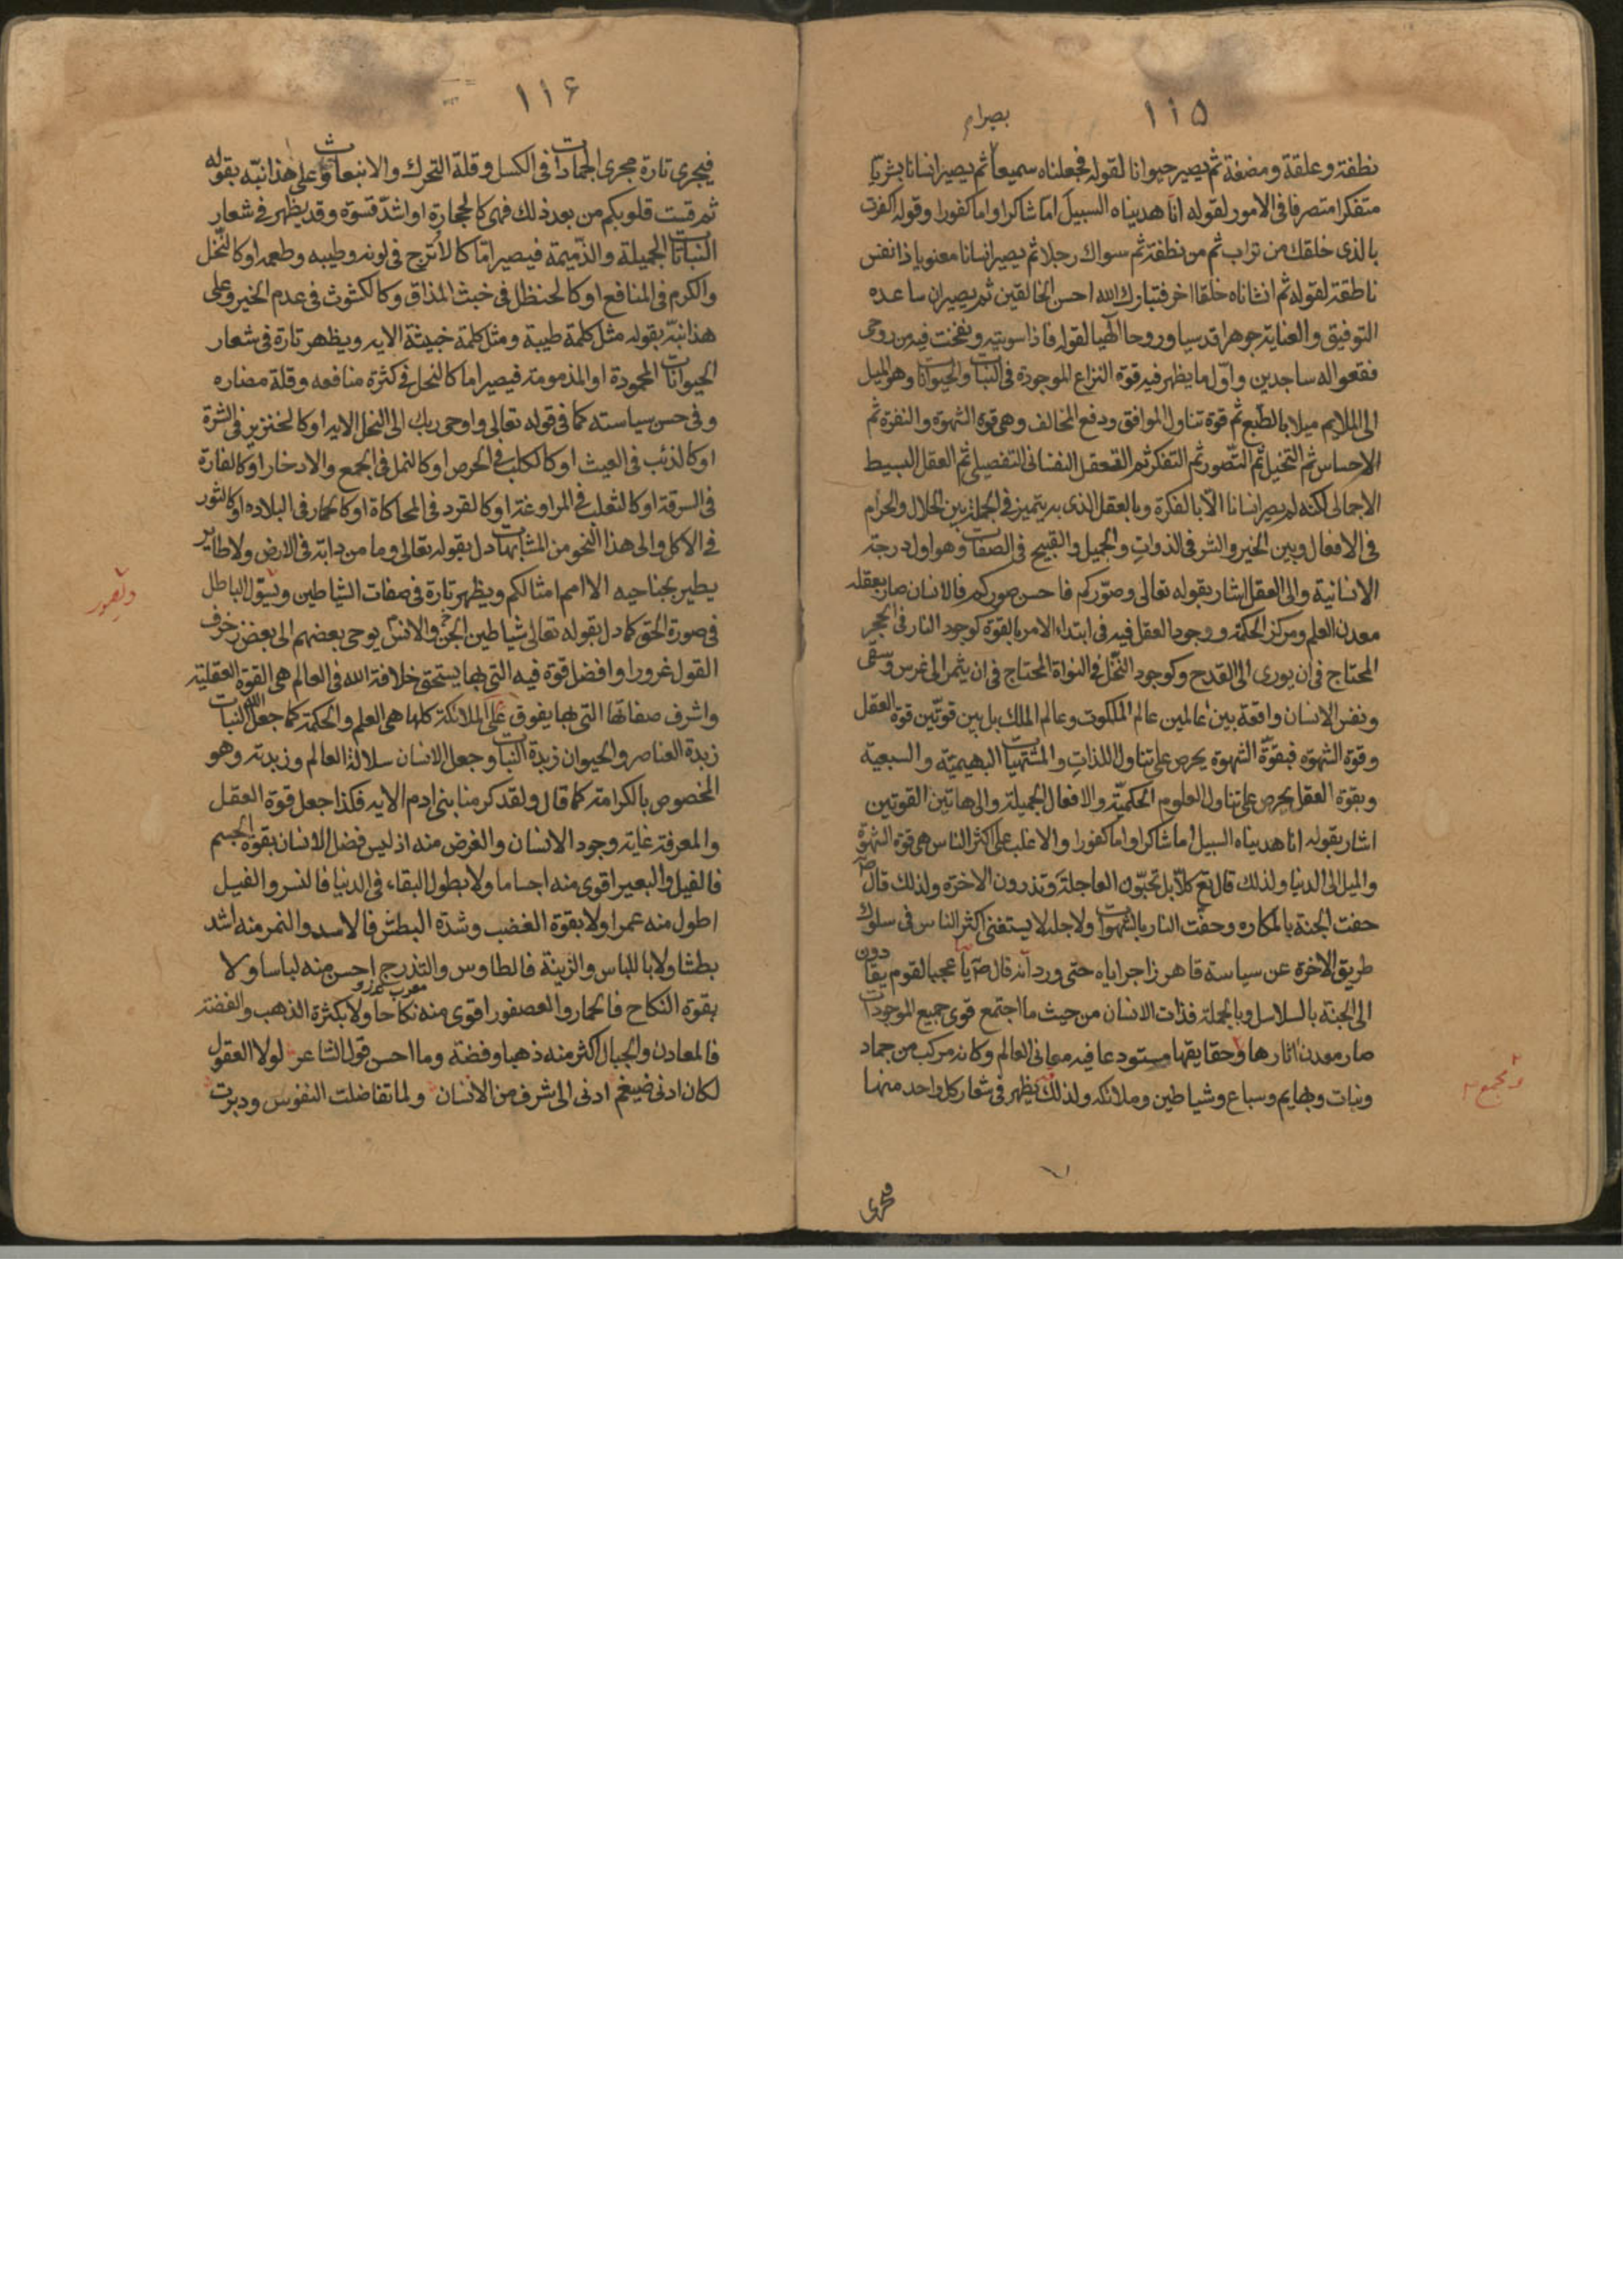 ١١٥
بصيرا م
نطفة وعلقة ومضغة ثم يصير حيوانا لقوله فجعلناه سميعا ثم يصير انسانا بشريا
متفكرا متصرفا فى الامور لقوله انا هديناه السبيل اما شاكرا واما كفورا وقوله اكفرت
بالذى خلقك من تراب ثم من نطفة ثم سواك رجلا ثم يصير انسانا معنويا ذا نفس
ناطقة لقوله ثم انشاناه خلقا اخر فتبارك الله احسن الخالقين ثم يصير ان ساعده
التوفيق والعناية جوهرا قدسيا وروحا الهيا لقوله فاذا سويته ونفخت فيه من روحى
فقعوا له ساجدين واول ما يظهر فيه قوة النزاع الموجودة فى النبات والحيوانات وهو الميل
الى الملايم ميلا بالطبع ثم قوة تناول الموافق ودفع المخالف وهى قوة الشهوة والنفرة ثم
الاحساس ثم التخيل ثم التصور ثم التفكر ثم التعقل النفسانى التفصيلى ثم العقل البسيط
الاجمالى لكنه لم يصر انسانا الا بالفكرة وبالعقل الذى به يتميز فى الجملة بين الحلال والحرام
فى الافعال وبين الخير والشر فى الذوات والجميل والقبيح فى الصفات وهو اول درجة
الانسانية والى العقل اشار بقوله تعالى وصوركم فاحسن صوركم فالانسان صار بعقله
معدن العلم ومركز الحكمة ووجود العقل فيه فى ابتداء الامر بالقوة كوجود النار فى الحجر
المحتاج فى ان يورى الى القدح وكوجود النخل فى النواة المحتاج فى ان يثمر الى غرس وسقى
ونفس الانسان واقعة بين عالمين عالم الملكوت وعالم الملك بل بين قوتين قوة العقل
وقوة الشهوة فبقوة الشهوة يحرص على تناول اللذات والمشتهيات البهيمية والسبعية
وبقوة العقل يحرص على تناول العلوم الحكمية والافعال الجميلة والى هاتين القوتين
اشار بقوله انا هديناه السبيل اما شاكرا واما كفورا والاغلب على اكثر الناس هى قوة الشهوة
والميل الى الدنيا ولذلك قال تع كلا بل تحبون العاجلة وتذرون الاخرة ولذلك قال ص
حفت الجنة بالمكاره وحفت النار بالشهوات ولاجله لا يستغنى اكثر الناس فى سلوك
طريق الاخرة عن سياسة قاهر زاجر اياه حتى ورد انه قال ص يا عجبا لقوم يقادون
الى الجنة بالسلاسل وبالجملة فذات الانسان من حيث ما اجتمع قوى جميع الموجودات
صار معدن اثارها وحقايقها مستودعا فيه معانى العالم وكانه مركب من جماد
ونبات وبهايم وسباع وشياطين وملائكه ولذلك يظهر فى شعار كل واحد منها
ومجمع
فيجرى
١١٦
فيجرى تارة مجرى الجمادات فى الكسل وقلة التحرك والانبعاث وعلى هذا نبه بقوله
ثم قست قلوبكم من بعد ذلك فهى كالحجارة او اشد قسوة وقد يظهر فى شعار
النباتات الجميلة والذميمة فيصير اما كالاترج فى لونه وطيبه وطعمه او كالنخل
والكرم فى المنافع او كالحنظل فى خبث المذاق وكالكشوث فى عدم الخير وعلى
هذا نبه بقوله مثل كلمة طيبة ومثل كلمة خبيثة الايه ويظهر تارة فى شعار
الحيوانات المحمودة او المذمومة فيصير اما كالنحل فى كثرة منافعه وقلة مضاره
وفى حسن سياسته كما فى قوله تعالى واوحى ربك الى النحل الايه او كالخنزير فى الشرة
او كالذئب فى العيث او كالكلب فى الحرص او كالنمل فى الجمع والادخار او كالفارة
فى السرقة او كالثعلب فى المراوغة او كالقرد فى المحاكاة او كالحمار فى البلاده او كالثور
فى الاكل والى هذا النحو من المشابهات دل بقوله تعالى وما من دابة فى الارض ولا طاير
يطير بجناحيه الا امم امثالكم ويظهر تارة فى صفات الشياطين ويسول الباطل
ويصور
فى صورة الحق كما دل بقوله تعالى شياطين الجن والانس يوحى بعضهم الى بعض زخرف
القول غرورا وافضل قوة فيه التى بها يستحق خلافة الله فى العالم هى القوة العقلية
واشرف صفاتها التى بها يفوق على الملائكة كلها هى العلم والحكمة كما جعل الله النبات
زبدة العناصر والحيوان زبدة النبات وجعل الانسان سلالة العالم وزبدته وهو
المخصوص بالكرامة كما قال ولقد كرمنا بنى ادم الايه فكذا جعل قوة العقل
والمعرفة غاية وجود الانسان والغرض منه اذ ليس فضل الانسان بقوة الجسم
فالفيل والبعير اقوى منه اجساما ولا بطول البقاء فى الدنيا فالنسر والفيل
اطول منه عمرا ولا بقوة الغضب وشدة البطش فالاسد والنمر منه اشد
بطشا ولا باللباس والزينة فالطاوس والتذرج احسن منه لباسا ولا
معرب تذرو
بقوة النكاح فالحمار والعصفور اقوى منه نكاحا ولا بكثرة الذهب والفضة
فالمعادن والجبال اكثر منه ذهبا وفضة وما احسن قول الشاعر لولا العقول
لكان ادنى ضيغم ادنى الى شرف من الانسان ولما تفاضلت النفوس ودبرت